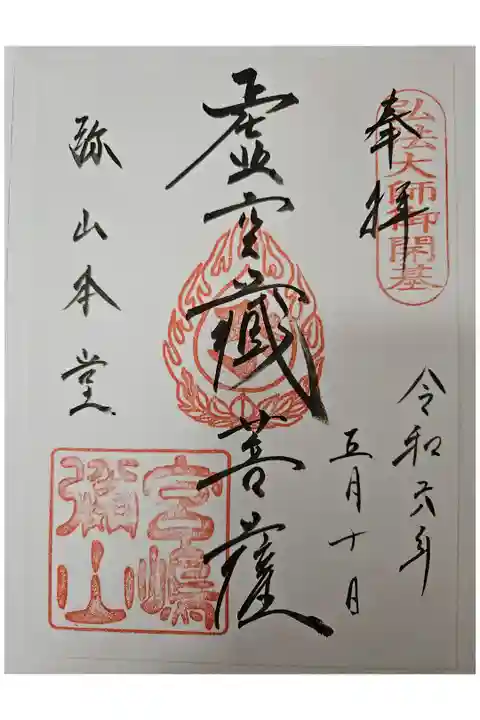 弘法大師御開基
奉拝
令和六年
五月十日
虚空蔵菩薩
弥山本堂
宮嶋
彌山